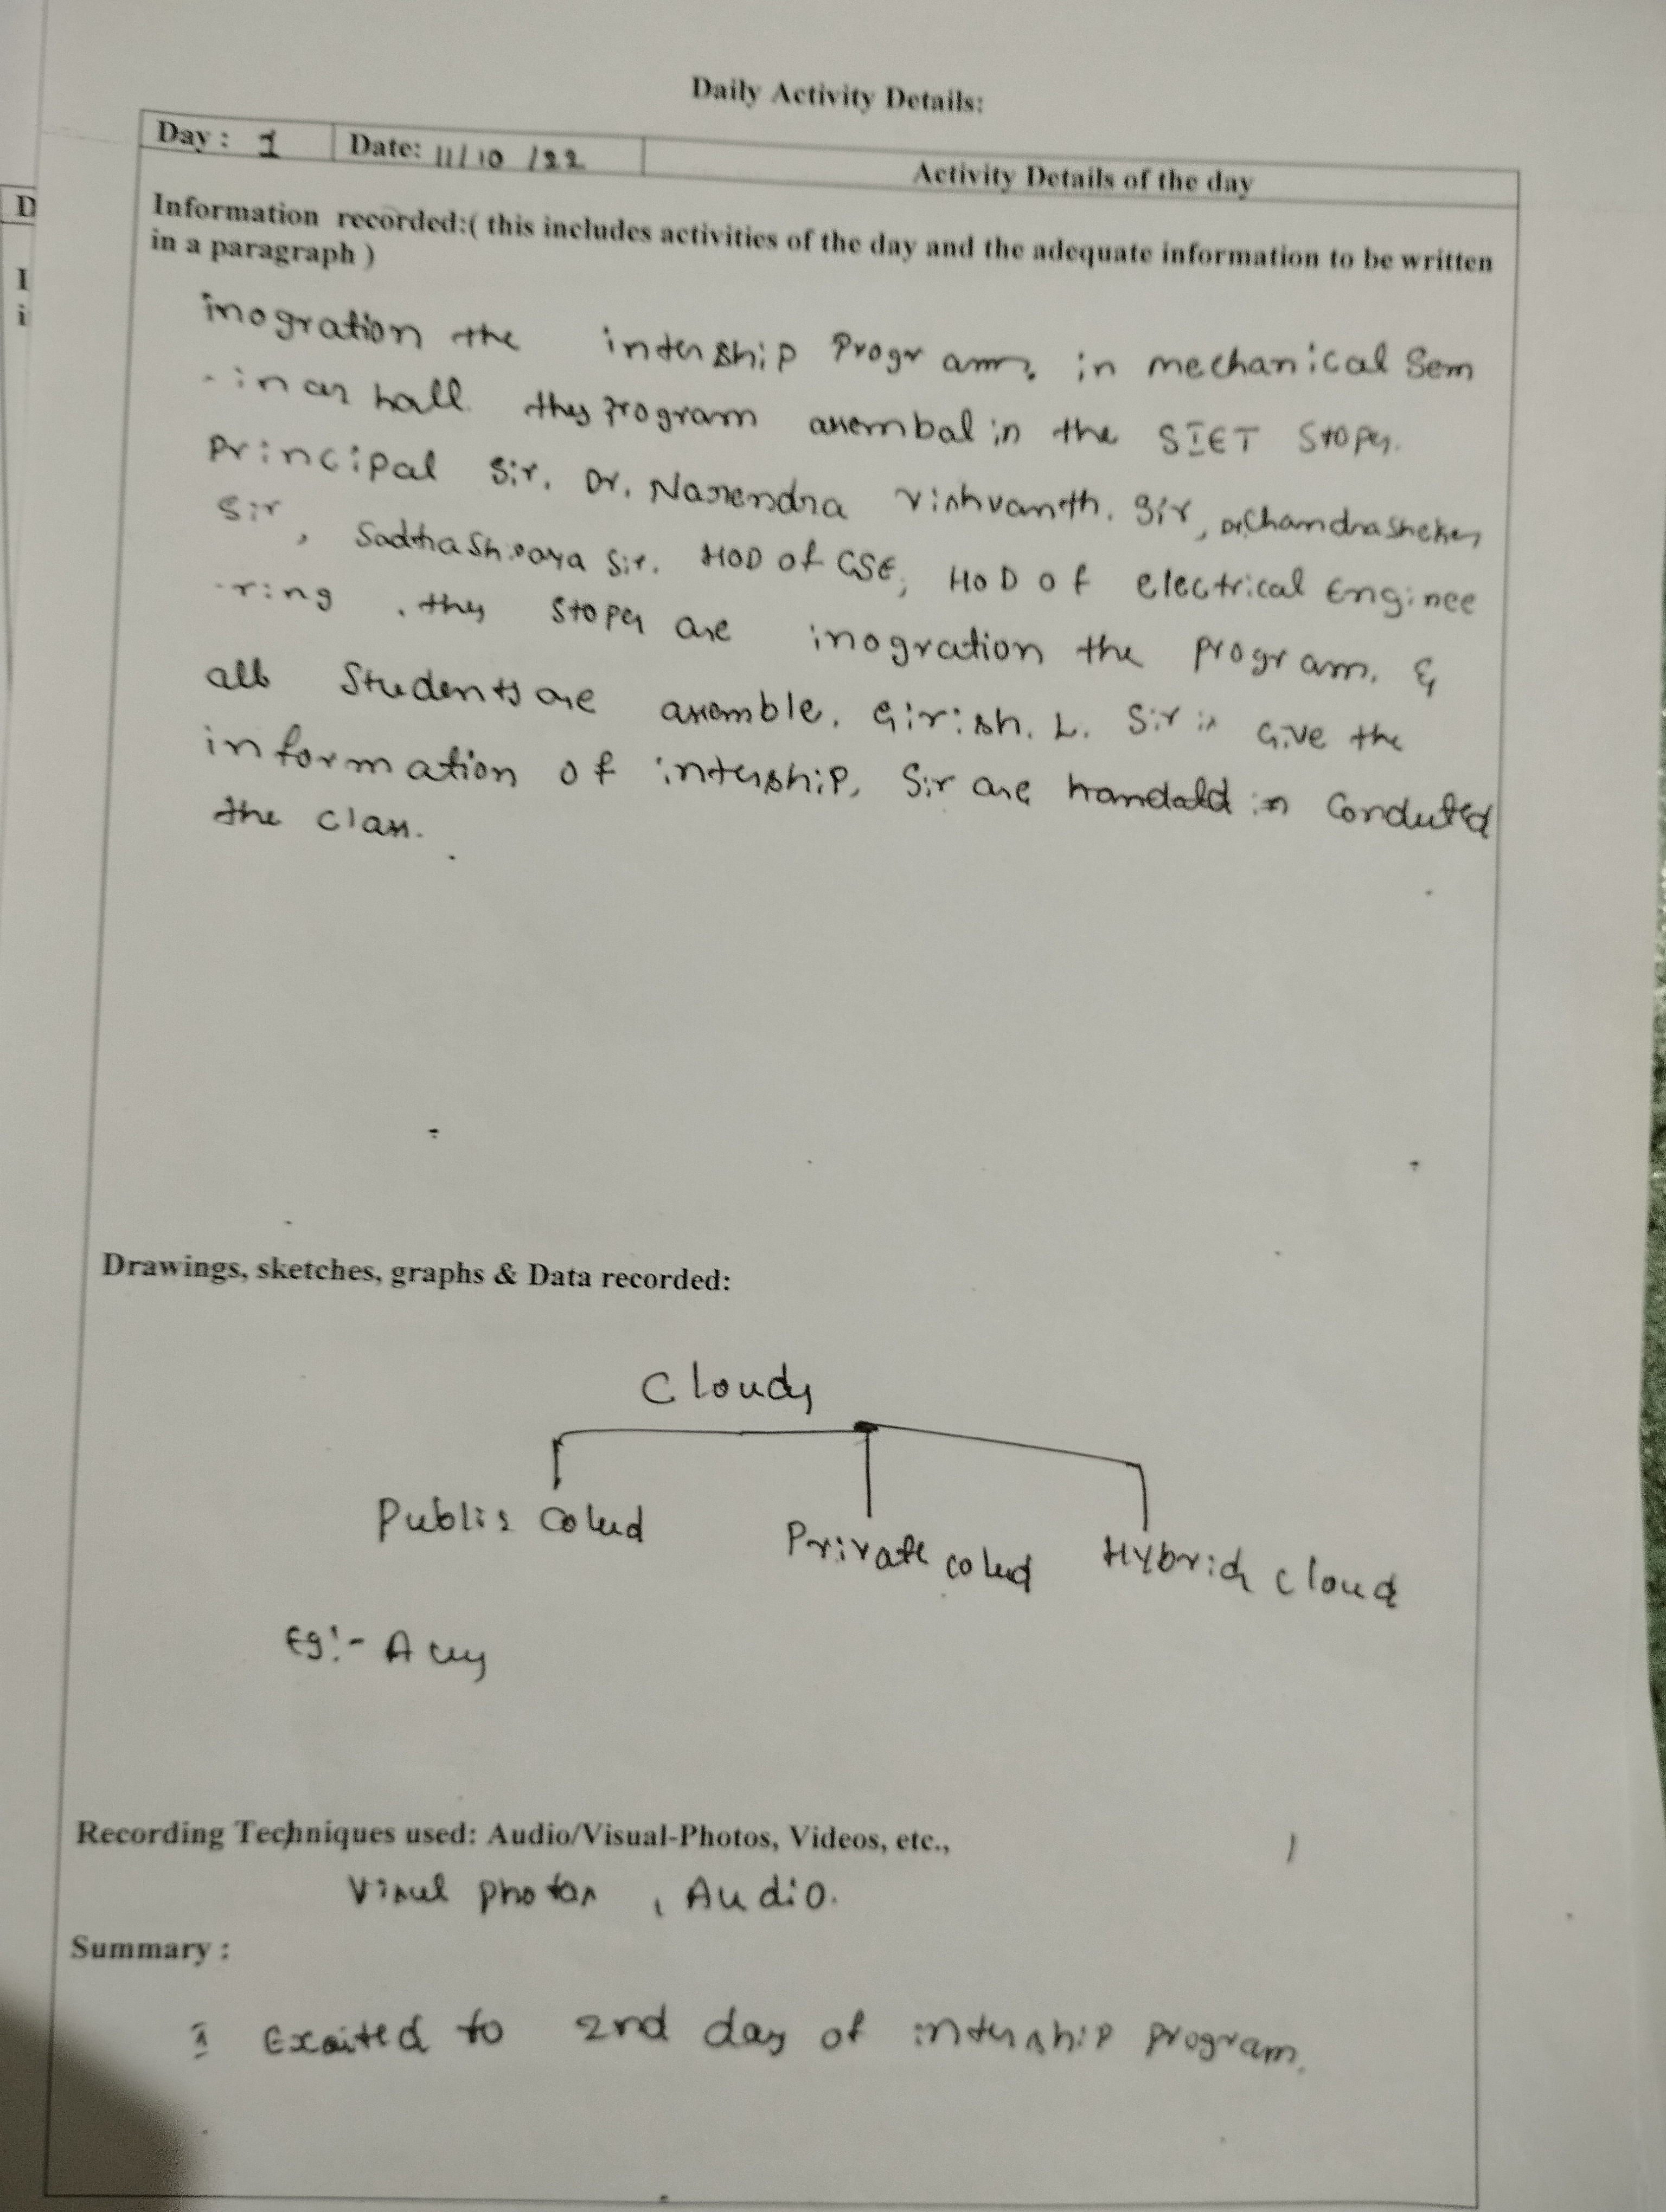 Daily Activity Details:
Day : 1 Date: 11/10/22 Activity Details of the day
Information recorded:( this includes activities of the day and the adequate information to be written
in a paragraph )
inogration the intership Program, in mechanical Sem
-inar hall. they program assembal in the SIET Stoper.
Principal Sir, Dr. Narendra Vishvanth. Sir, Dr.Chandrasheker
Sir, Sir. HOD of CSE, HOD of electrical Enginee
-ring, they Stoper are inogration the program. &
all Students are assemble. Girish. L. Sir is Give the
information of intership, Sir are in Conduted
the class.
Drawings, sketches, graphs & Data recorded:
Clouds
Public Colud Private colud Hybrid cloud
Eg:-
Recording Techniques used: Audio/Visual-Photos, Videos, etc.,
Visul photos, Audio.
Summary :
Excited to 2nd day of intership program.
D
I
i